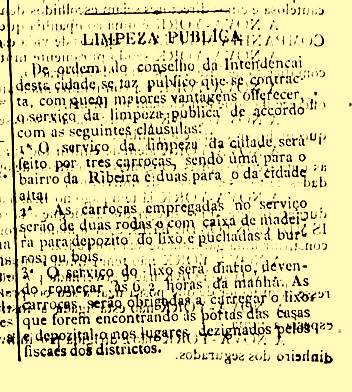 LIMPEZA PUBLICA
De ordem do conselho da Intendencai
desta cidade se faz publico que se contrac-
ta, com quem maiores vantagens offerecer
o serviço da limpeza publica de accordo
com as seguintes clausulas:
1ª O serviço da limpeza da cidade será
feito por tres carroças, sendo uma para o
bairro da Ribeira e duas para o da cidade
alta:
2ª As carroças empregadas no serviço
serão de duas rodas o com caixa de madei-
ra para depozito do lixo e puchadas á bur-
ros, ou bois.
3ª O serviço do lixo será diario, deven-
do começar ás 6 horas da manhã. As
carroças serão obrigadas a carregar o lixo
que forem encontrando ás portas das casas
e depozital-o nos lugares dezignados pelos
fiscaes dos districtos.